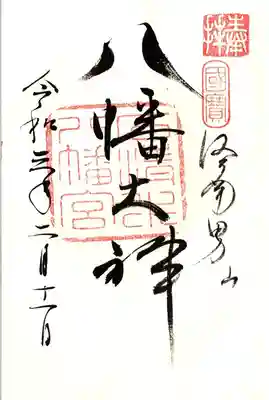 奉拝
國寶
洛南男山
八幡大神
石清水
八幡宮
令和三年二月十一日